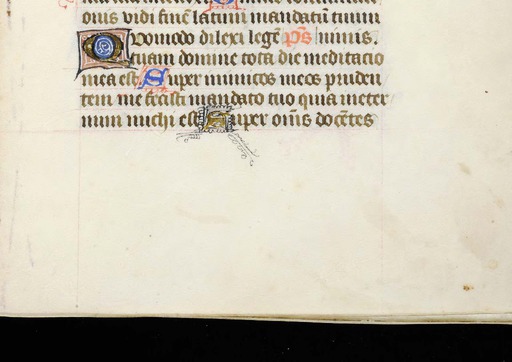 onis vidi finē latum mandatū tuum
Quomodo dilexi legē p̄s nimis.
tuam domine tota die meditacio
mea est Super inimicos meos pruden
tem me fecisti mandato tuo quia ineter
num michi est Super om̄s docētes